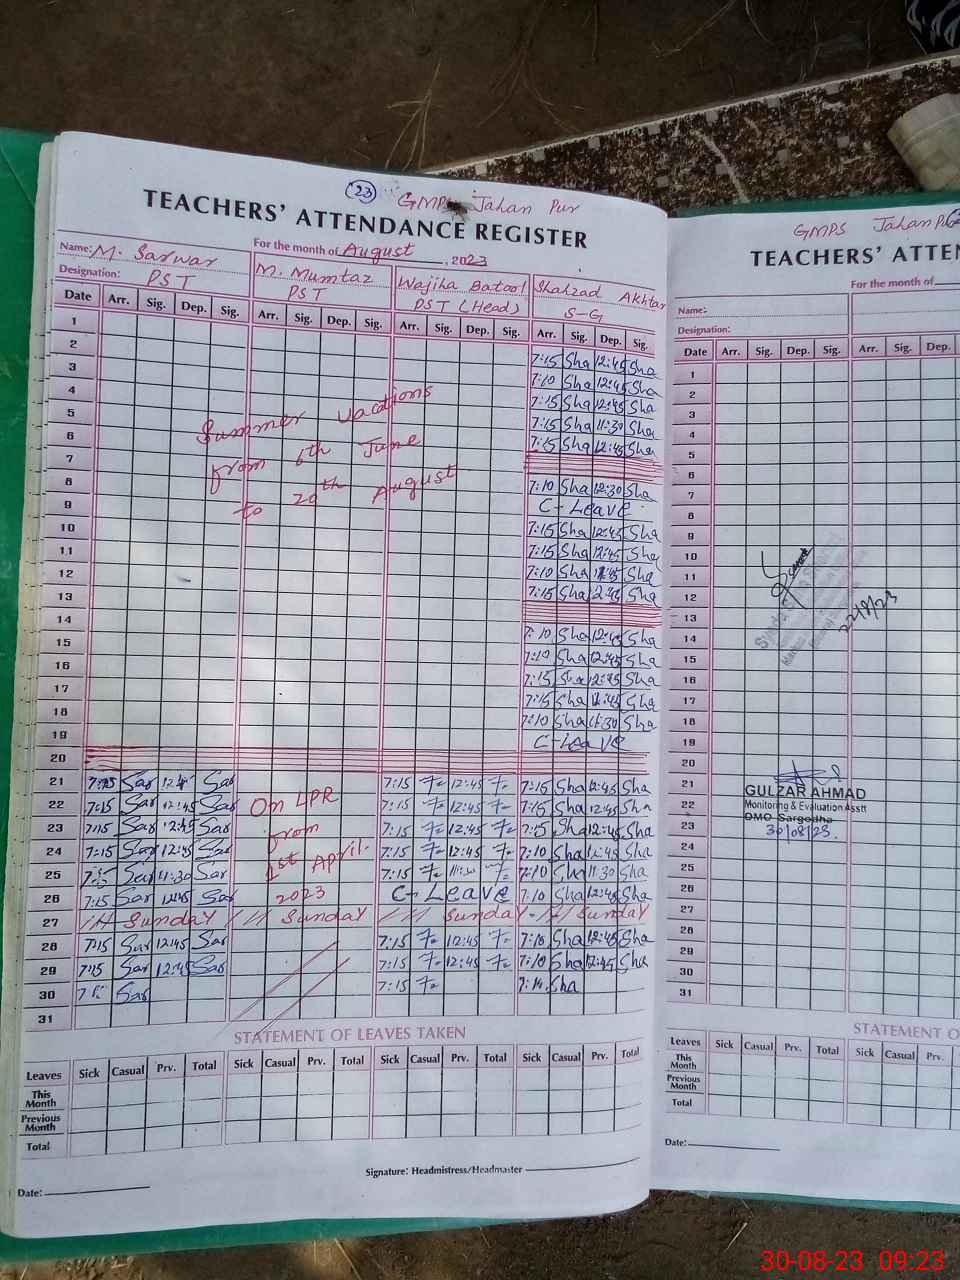 23 GMPS Jahan Pur
TEACHERS' ATTENDANCE REGISTER
Name: M. Sarwar For the month of August, 2023
Designation: PST M. Mumtaz PST Wajiha Batool PST (Head) Shahzad Akhtar S-G
Date Arr. Sig. Dep. Sig. Arr. Sig. Dep. Sig. Arr. Sig. Dep. Sig. Arr. Sig. Dep. Sig.
1
2 7:15 Sha 12:45 Sha
3 7:10 Sha 12:45 Sha
4 7:15 Sha 12:45 Sha
5 7:15 Sha 11:30 Sha
6 7:15 Sha 12:45 Sha
Summer vacations
from 6th June
to 20th August
7
8 7:10 Sha 12:30 Sha
9 C-Leave
10 7:15 Sha 12:45 Sha
11 7:15 Sha 12:45 Sha
12 7:10 Sha Sha
13 7:15 Sha 2:45 Sha
14
15 7:10 Sha 12:45 Sha
16 7:10 Sha 12:45 Sha
17 7:15 Sha 12:45 Sha
18 7:15 Sha 12:45 Sha
19 7:10 Sha 11:30 Sha
C-Leave
20
21 7:15 Sar 12:45 Sar 7:15 12:45 7:15 Sha 12:45 Sha
22 7:15 Sar 12:45 Sar 7:15 12:45 7:15 Sha 12:45 Sha
23 7:15 Sar 12:45 Sar 7:15 12:45 7:15 Sha 12:45 Sha
24 7:15 Sar 12:45 Sar 7:15 12:45 7:10 Sha 12:45 Sha
25 Sar 11:30 Sar 7:15 11:30 7:10 Sha 11:30 Sha
26 7:15 Sar 12:45 Sar C-Leave 7:10 Sha 12:45 Sha
On LPR
from
1st April.
2023
27 Sunday Sunday Sunday Sunday
28 7:15 Sar 12:45 Sar 7:15 12:45 7:10 Sha 12:45 Sha
29 7:15 Sar 12:45 Sar 7:15 12:45 7:10 Sha 12:45 Sha
30 Sar 7:15 7:14 Sha
31
STATEMENT OF LEAVES TAKEN
Leaves Sick Casual Prv. Total Sick Casual Prv. Total Sick Casual Prv. Total Sick Casual Prv. Total
This Month
Previous Month
Total
Signature: Headmistress/Headmaster
Date:
GMPS Jahan P
TEACHERS' ATTEN
For the month of
Name:
Designation:
Date Arr. Sig. Dep. Sig. Arr. Sig. Dep.
1
2
3
4
5
6
7
8
9
10
11
12
13
14
15
16
17
18
19
20
21
22
23
24
25
26
27
28
29
30
31
22/8/23
GULZAR AHMAD
Monitoring & Evaluation Asstt
DMO Sargodha
30/08/23.
STATEMENT O
Leaves Sick Casual Prv. Total Sick Casual Prv.
This Month
Previous Month
Total
Date:
30-08-23 09:23